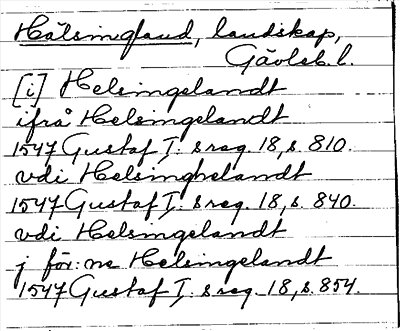 Hälsingland, landskap,
Gävleb. l.
[i] Helsingelandt
ifrå Helsingelandt
1547 Gustaf I: s reg. 18, s. 810.
vdi Helsinghelandt
1547 Gustaf I: s reg. 18, s. 840.
vdi Helsingelandt
j för:ne Helsingelandt
1547 Gustaf I: s reg. 18, s. 854.